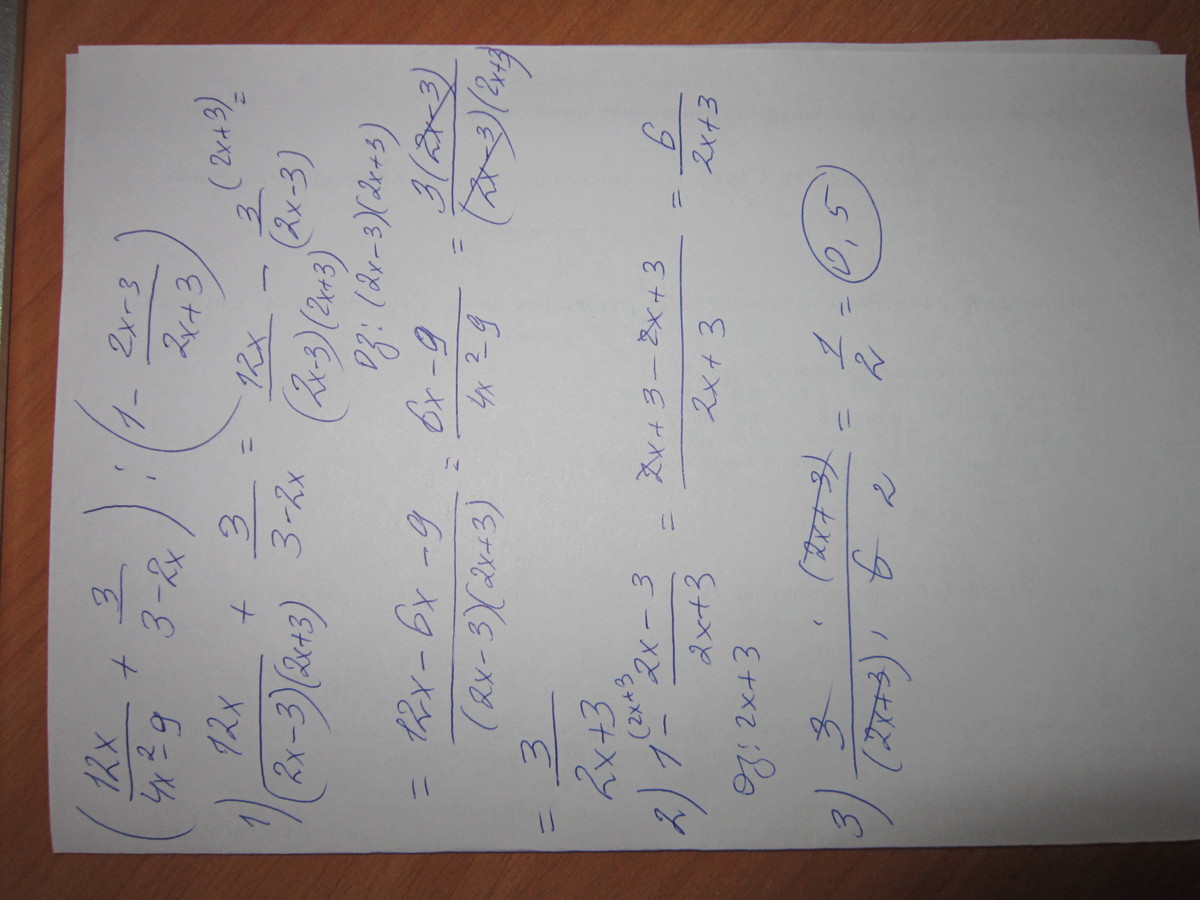 (12x/(4x²-9) + 3/(3-2x)) : (1 - (2x-3)/(2x+3))
1) 12x/((2x-3)(2x+3)) + 3/(3-2x) = 12x/((2x-3)(2x+3)) - 3/(2x-3) (2x+3) =
OЗ: (2x-3)(2x+3)
= (12x - 6x - 9)/((2x-3)(2x+3)) = (6x-9)/(4x²-9) = 3(2x-3)/((2x-3)(2x+3))
= 3/(2x+3)
2) 1 (2x+3) - (2x-3)/(2x+3) = (2x+3-2x+3)/(2x+3) = 6/(2x+3)
OЗ: 2x+3
3) 3 · (2x+3)/((2x+3) · 6 2) = 1/2 = 0,5